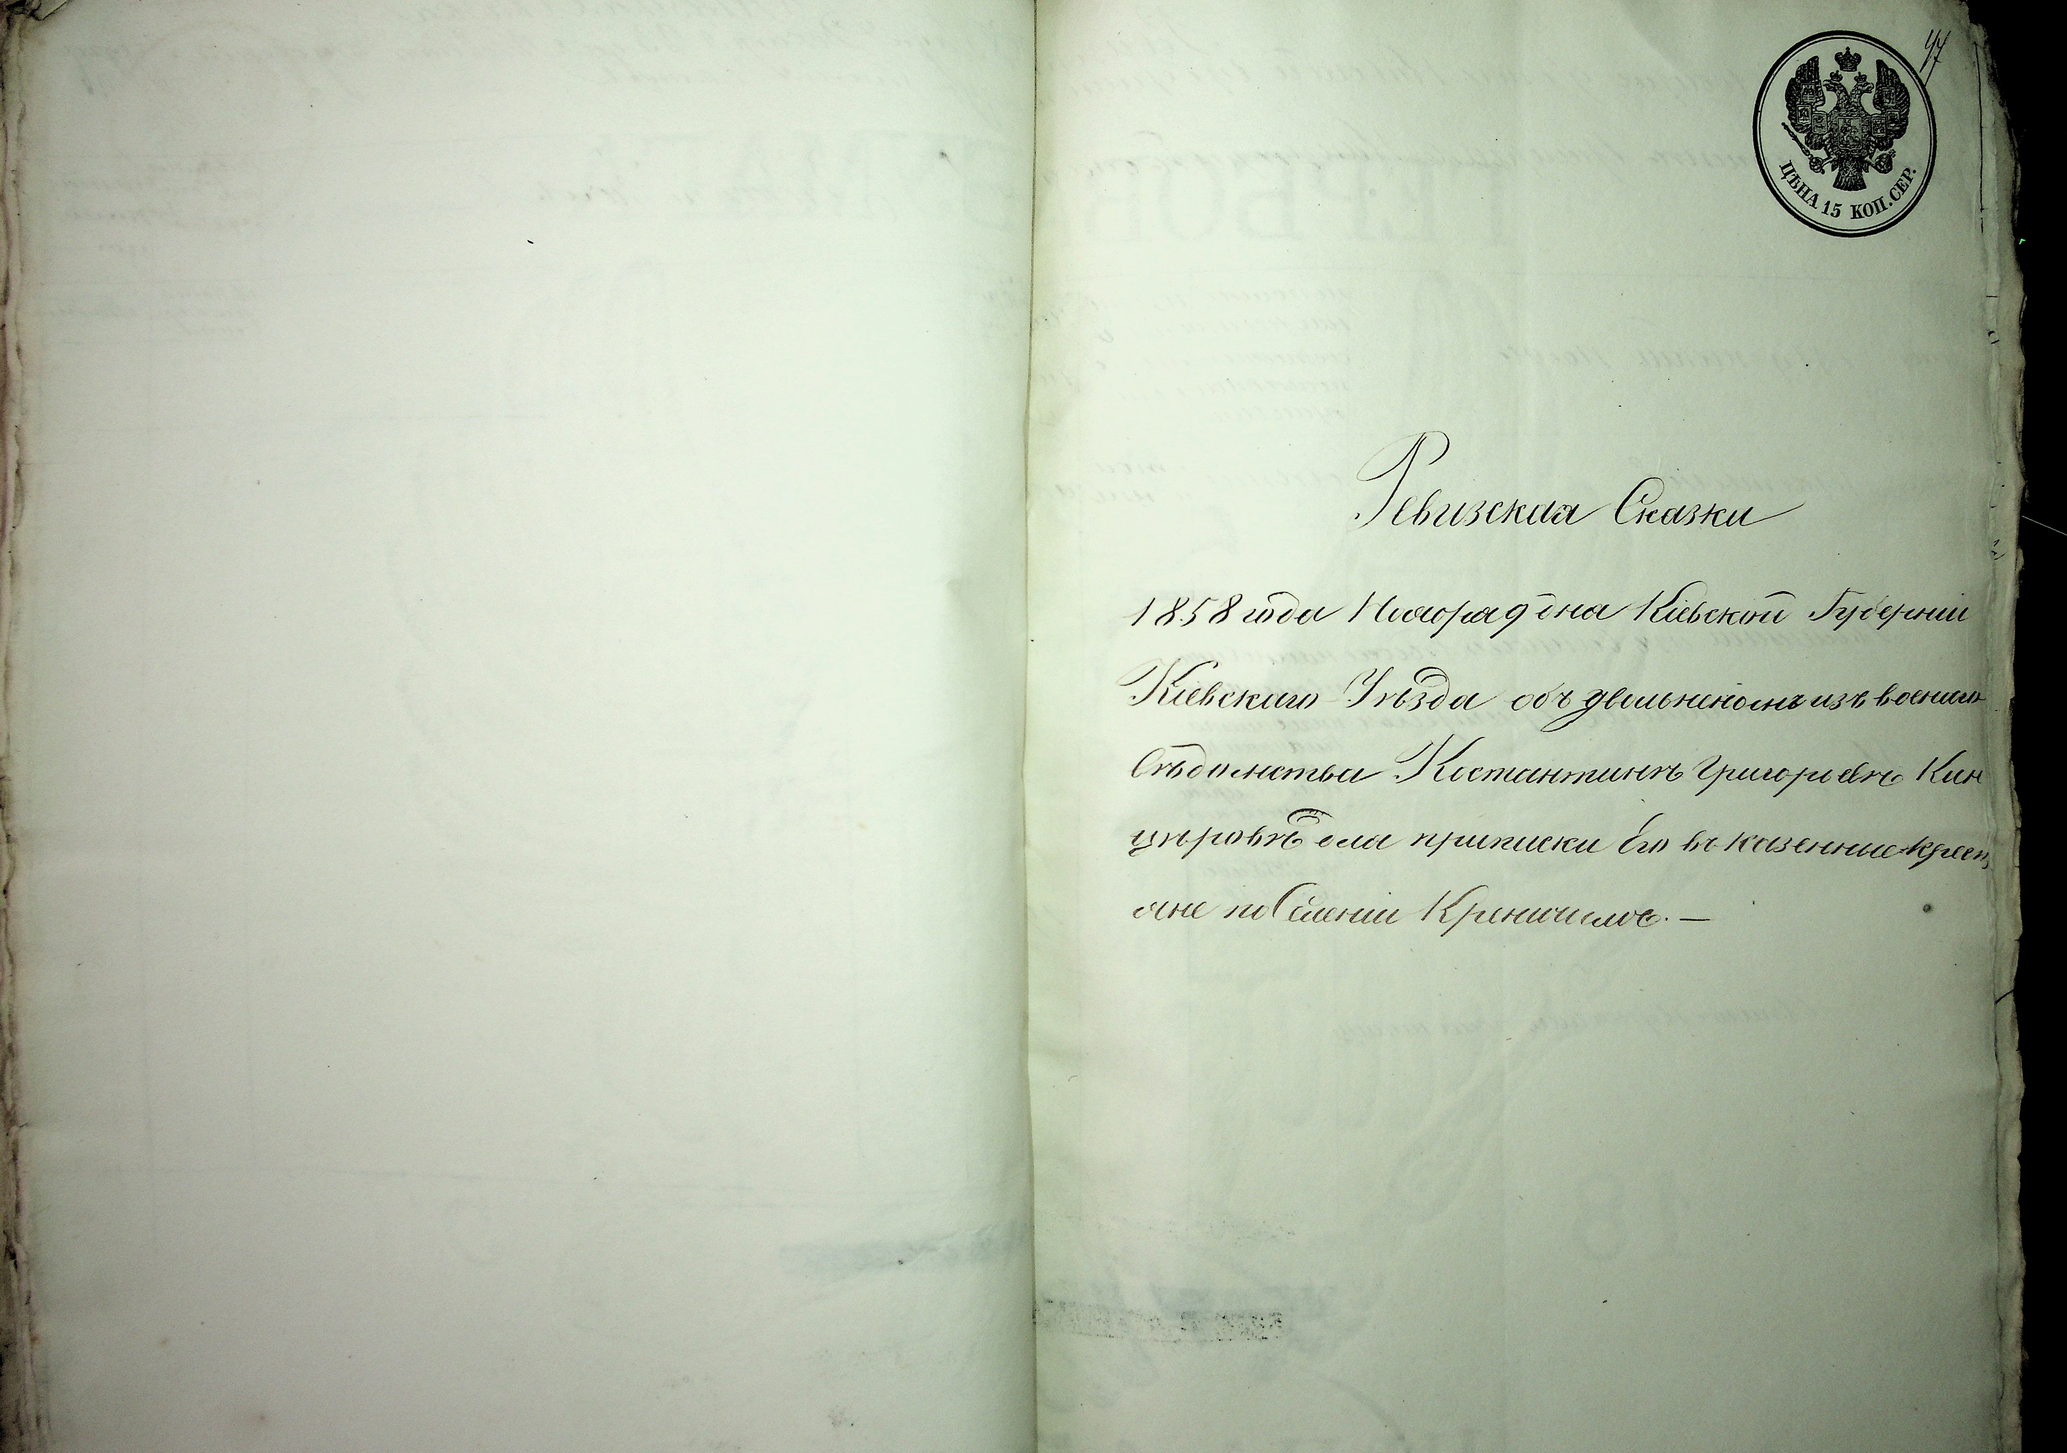 47
ЦѢНА 15 КОП. СЕР.
Ревизская Сказки
1858 года Ноября 9 дна Кіевской Губерніи
Кіевскаго Уѣзда объ из военнаго
Вѣдомства Костантинѣ Григоревѣ Кин
цировѣ для приписки Его въ казенние крест
яне по Селении